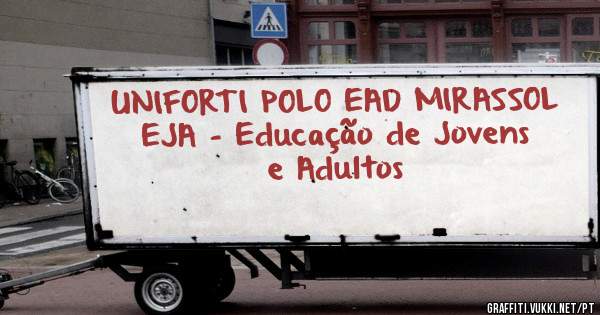 UNIFORTI POLO EAD MIRASSOL
EJA - Educação de Jovens
e Adultos
GRAFFITI.VUKKI.NET/PT